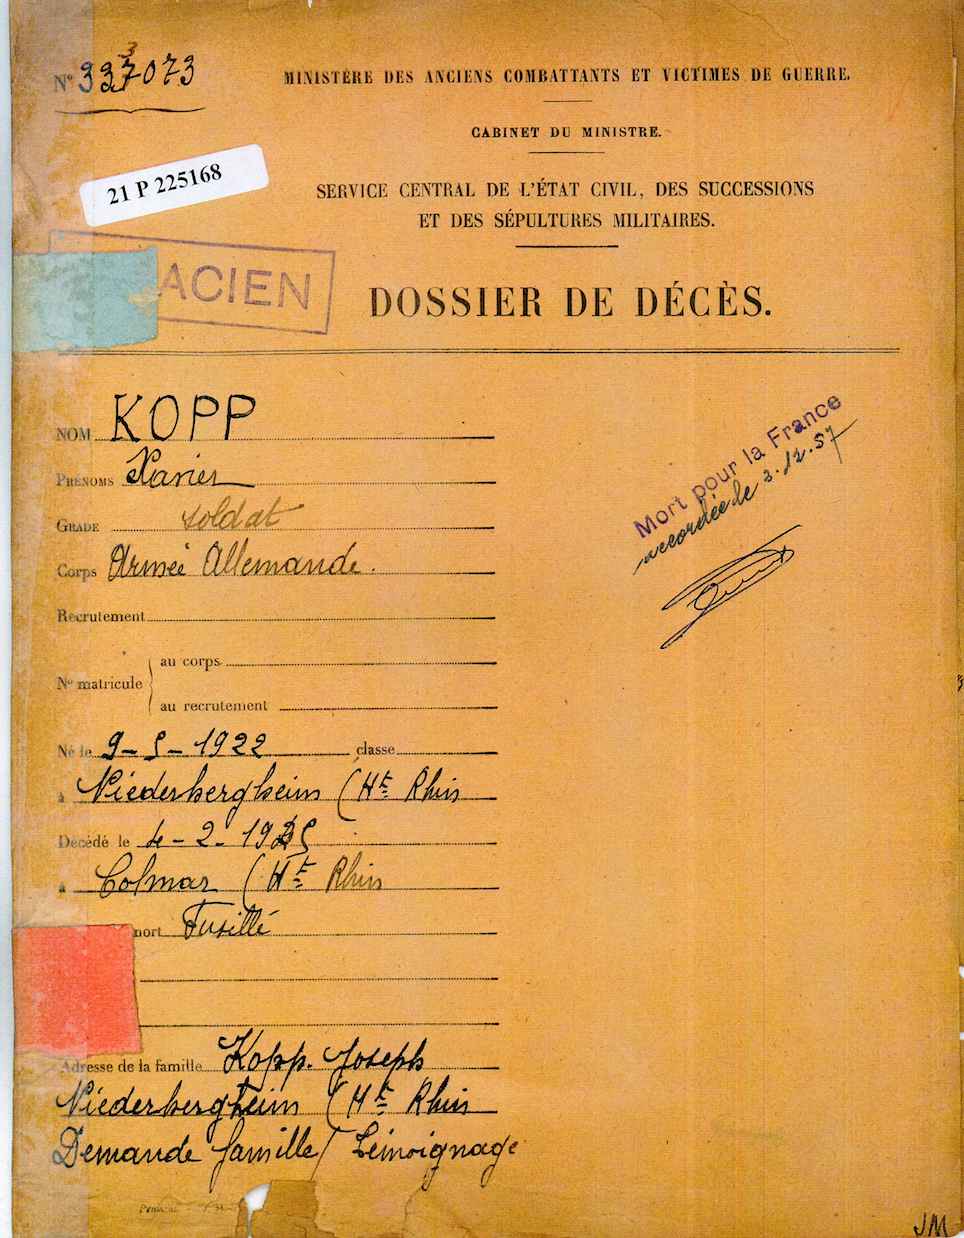 N° 337073
3
MINISTÈRE DES ANCIENS COMBATTANTS ET VICTIMES DE GUERRE.
CABINET DU MINISTRE.
21 P 225168
SERVICE CENTRAL DE L'ÉTAT CIVIL, DES SUCCESSIONS
ET DES SÉPULTURES MILITAIRES.
ACIEN
DOSSIER DE DÉCÈS.
NOM KOPP
PRÉNOMS Xavier
GRADE soldat
Corps Armée Allemande.
Mort pour la France
accordée le 3.12.57
Recrutement
au corps
N° matricule
au recrutement
Né le 9-5-1922 classe
à Niederhergheim (Ht Rhin
Décédé le 4-2-1945
à Colmar (Ht Rhin
mort Fusillé
Adresse de la famille Kopp. Joseph
Niederhergheim (Ht Rhin
Demande famille/ Témoignage
JM